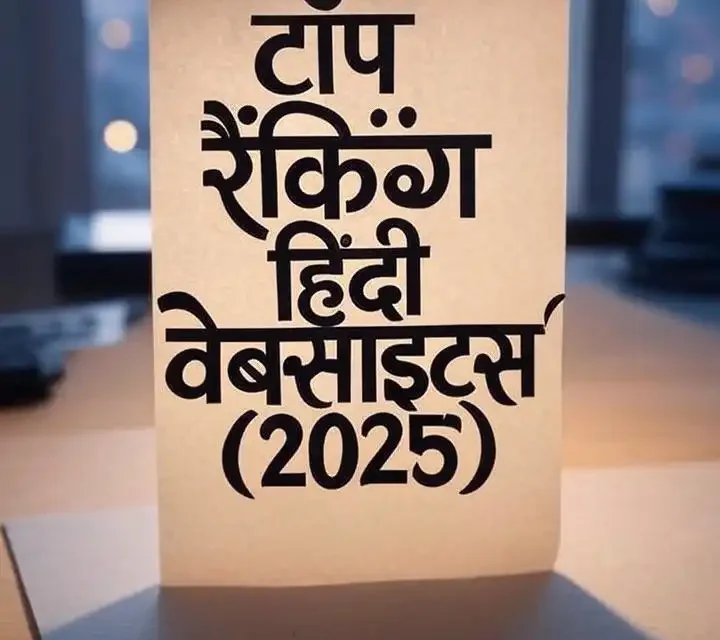 टॉप
रैंकिंग
हिंदी
वेबसाइटर्स
(2025)